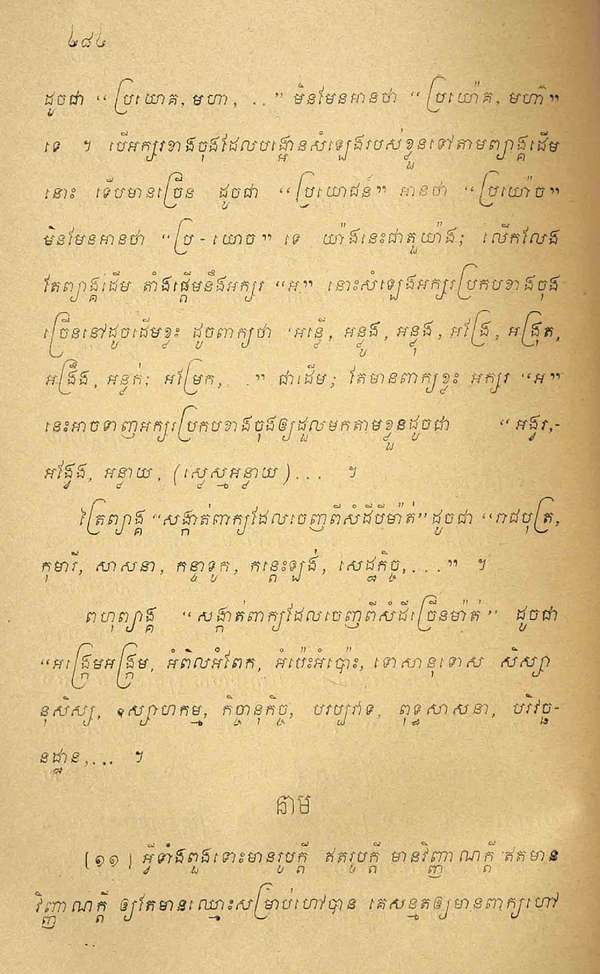 ៤៨៤
ដូចជា “ប្រយោគ, មហា, ..” មិនមែនអានថា “ប្រយ៉ោគ, មហ៊ា”
ទេ ។ បើអក្សរខាងចុងដែលបង្អោនសំឡេងរបស់ខ្លួនទៅតាមព្យាង្គដើម
នោះ ទើបមានច្រើន ដូចជា “ប្រយោជន៍” អានថា “ប្រយ៉ោច”
មិនមែនអានថា “ប្រ-យោច” ទេ យ៉ាងនេះជាតួយ៉ាង; លើកលែង
តែព្យាង្គដើម តាំងផ្ដើមនឹងអក្សរ “អ” នោះសំឡេងអក្សរប្រកបខាងចុង
ច្រើននៅដូចដើមខ្លះ ដូចពាក្យថា “អន្ទើ, អន្ទូង, អន្ទុង, អង្រែ, អង្រុត,
អង្រឹង, អន្ទក់; អម្រែក, . .” ជាដើម; តែមានពាក្យខ្លះ អក្សរ “អ”
នេះអាចទាញអក្សរប្រកបខាងចុងឲ្យដួលមកតាមខ្លួនដូចជា “អង្វរ,-
អង្វែង, អន្ទាយ, (ស្មេស្មអន្ទាយ)... ។
ត្រៃព្យាង្គ “សង្កាត់ពាក្យដែលចេញពីសំដីបីម៉ាត់” ដូចជា “រាជបុត្រ,
កុមារី, សាសនា, កន្ទាទូក, កន្ដេះឡង់, សេដ្ឋកិច្ច,...” ។
ពហុព្យាង្គ “សង្កាត់ពាក្យដែលចេញពីសំដីច្រើនម៉ាត់” ដូចជា
“អង្រែមអង្រែម, អំពិលអំពែក, អំប៉េះអំប៉ោះ, ទោសានុទោស សិស្សា
នុសិស្ស, ឧស្សាហកម្ម, កិច្ចានុកិច្ច, បរប្បវាទ, ពុទ្ធសាសនា, បរិវច្ច-
នដ្ឋាន,... ។
នាម
(១១) អ្វីទាំងពួងទោះមានរូបក្ដី ឥតរូបក្ដី មានវិញ្ញាណក្ដី ឥតមាន
វិញ្ញាណក្ដី ឲ្យតែមានឈ្មោះសម្រាប់ហៅបាន គេសន្មតឲ្យមានពាក្យហៅ